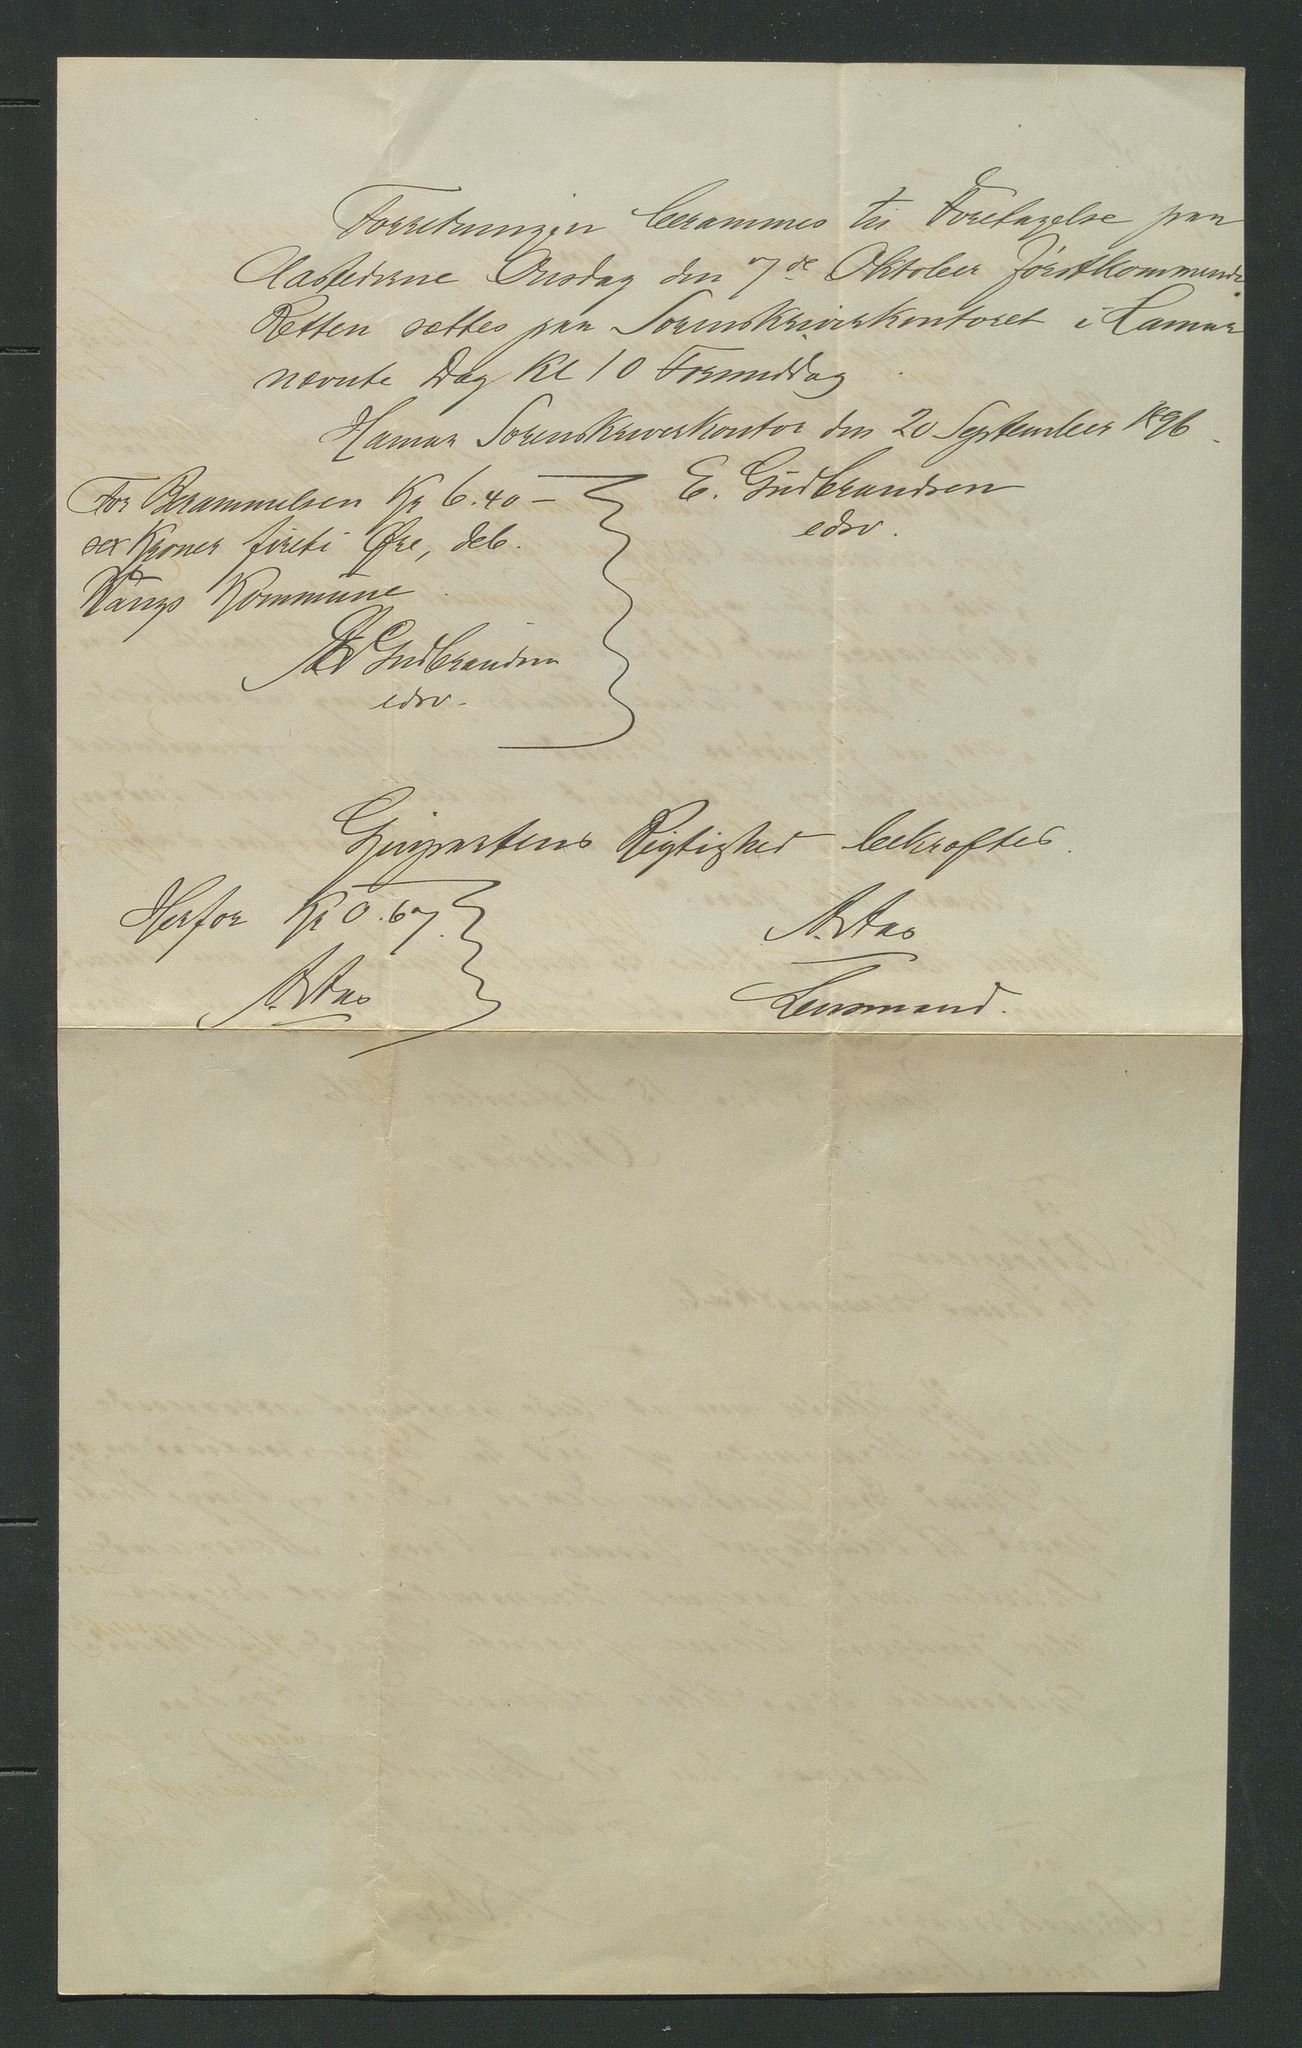 Forretningen berammes til Foretagelse paa
Aastederne Onsdag den 7de Oktober førstkommende.
Retten sættes paa Sorenskriverkontoret i Hamar
nævnte Dag Kl 10 Formiddag.
Hamar Sorenskriverkontor den 20 September 1896.
E. Gudbrandsen
edsv.
For Berammelsen Kr 6.40 –
sex Kroner firti Øre, deb.
Vangs Kommune
Gudbrandsen
edsv.
Gjenpartens Rigtighed bekræftes.
Herfor Kr 0.67.
A. Aas
Lensmand.
A. Aas